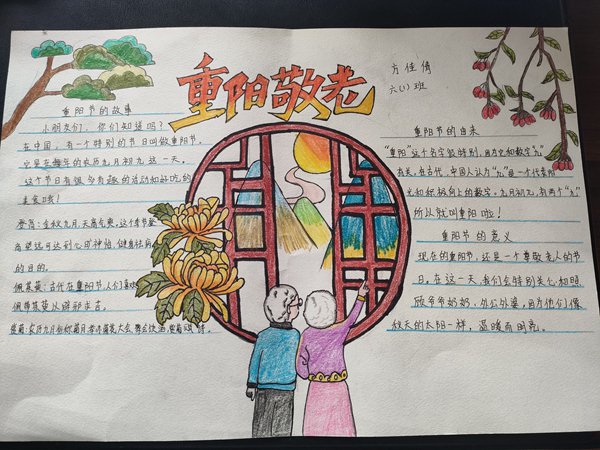 重阳敬老
方佳倩
六(1)班
重阳节的故事
小朋友们，你们知道吗？
在中国，有一个特别的节日叫做重阳节，
它是在每年的农历九月初九这一天。
这个节日有很多有趣的活动和好吃的
美食哦！
登高：金秋九月天高气爽，这个季节登
高望远可达到心旷神怡，健身祛病
的目的。
佩茱萸：古代在重阳节人们喜欢
佩带茱萸以辟邪求吉。
重阳节的由来
"重阳"这个名字很特别，因为它和数字"九"
有关。在古代，中国人认为"九"是一个代表阳
光和积极向上的数字，九月初九，有两个"九"，
所以就叫重阳啦！
重阳节的意义
现在的重阳节，还是一个尊敬老人的节
日。在这一天，我们会特别关心和照
顾爷爷奶奶，外公外婆，因为他们像
秋天的太阳一样，温暖而明亮。